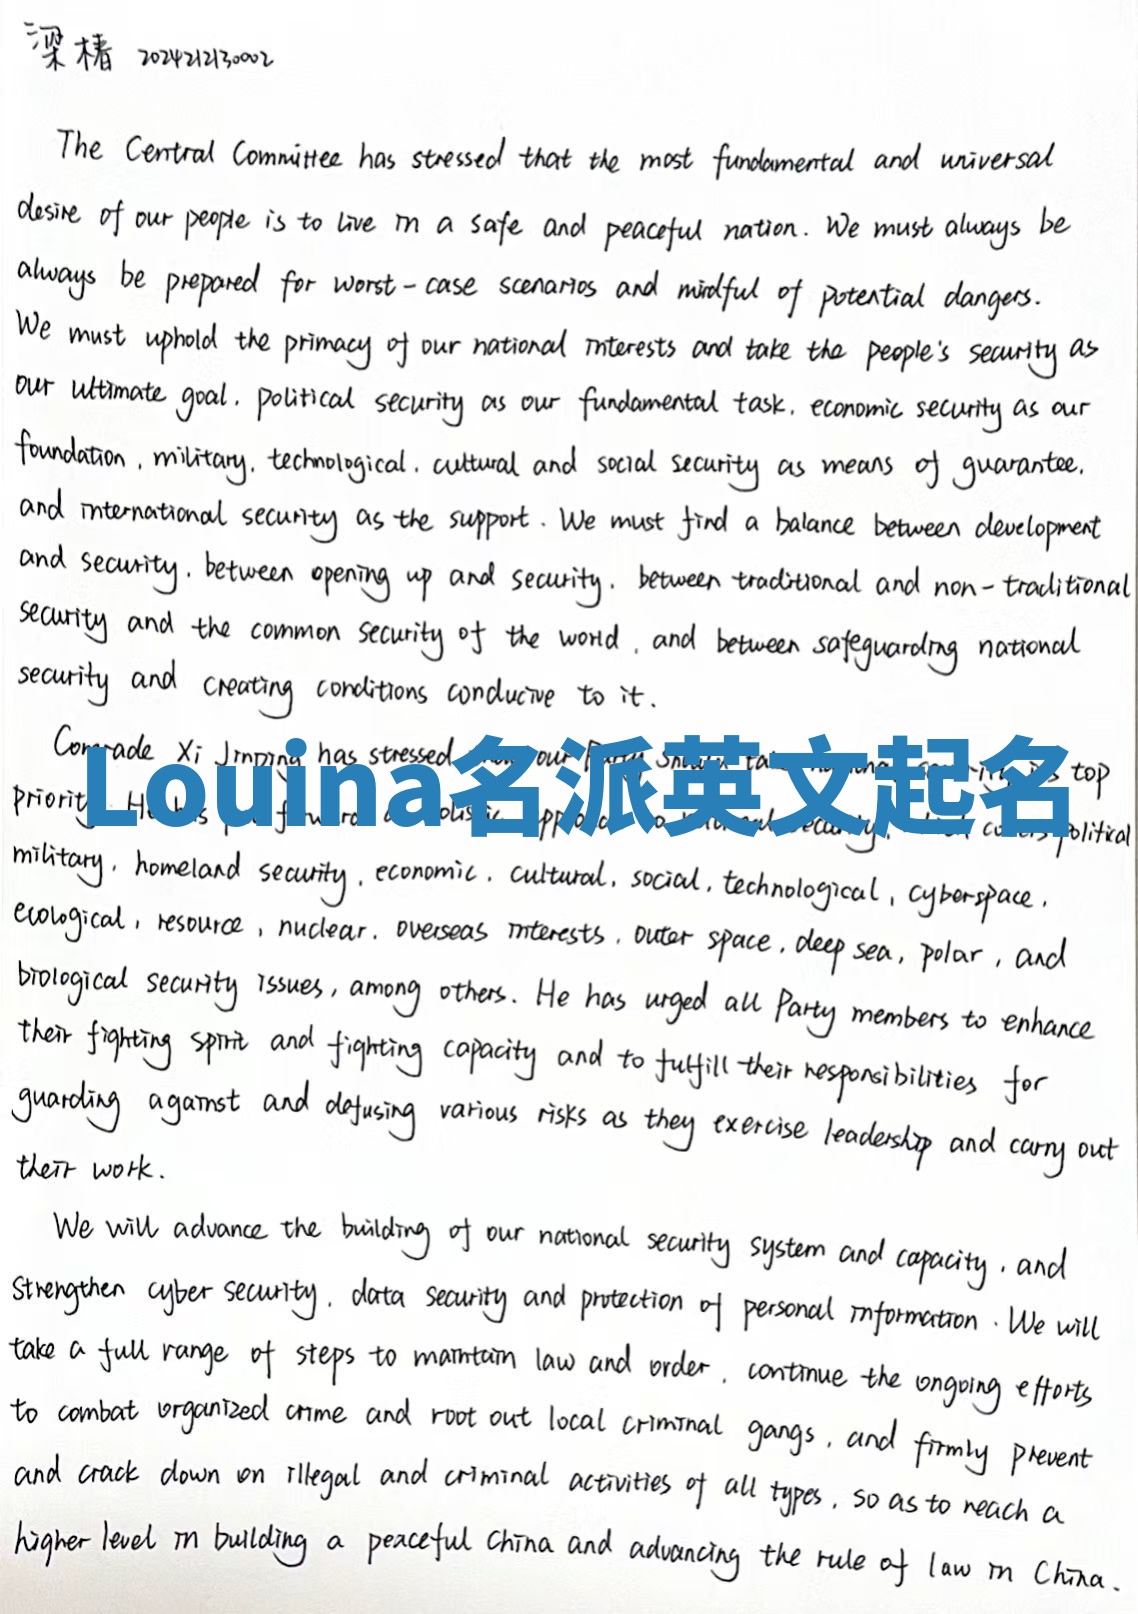 梁椿 2024212130002
The Central Committee has stressed that the most fundamental and universal
desire of our people is to live in a safe and peaceful nation. We must always be
always be prepared for worst-case scenarios and mindful of potential dangers.
We must uphold the primacy of our national interests and take the people's security as
our ultimate goal, political security as our fundamental task, economic security as our
foundation, military, technological, cultural and social security as means of guarantee,
and international security as the support. We must find a balance between development
and security, between opening up and security, between traditional and non-traditional
security and the common security of the world, and between safeguarding national
security and creating conditions conducive to it.
Comrade Xi Jinping has stressed our Party top
Louina名派英文起名
priority. He has political
military, homeland security, economic, cultural, social, technological, cyberspace,
ecological, resource, nuclear, overseas interests, outer space, deep sea, polar, and
biological security issues, among others. He has urged all Party members to enhance
their fighting spirit and fighting capacity and to fulfill their responsibilities for
guarding against and defusing various risks as they exercise leadership and carry out
their work.
We will advance the building of our national security system and capacity, and
strengthen cyber security, data security and protection of personal information. We will
take a full range of steps to maintain law and order, continue the ongoing efforts
to combat organized crime and root out local criminal gangs, and firmly prevent
and crack down on illegal and criminal activities of all types, so as to reach a
higher level in building a peaceful China and advancing the rule of law in China.